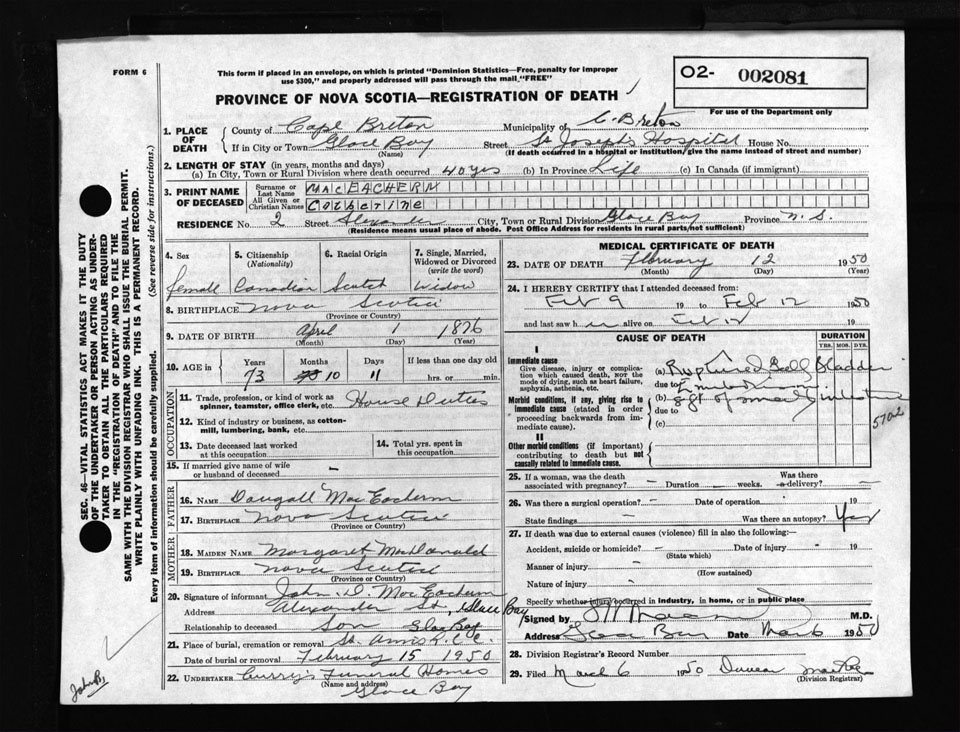 FORM 6
This form if placed in an envelope, on which is printed "Dominion Statistics—Free, penalty for improper
use $300," and properly addressed will pass through the mail "FREE"
O2- 002081
For use of the Department only
PROVINCE OF NOVA SCOTIA—REGISTRATION OF DEATH
1. PLACE OF DEATH
County of Cape Breton Municipality of C. Breton
If in City or Town Glace Bay Street St Joseph's Hospital House No.
(Name) (If death occurred in a hospital or institution, give the name instead of street and number)
2. LENGTH OF STAY (in years, months and days)
(a) In City, Town or Rural Division where death occurred 40 yrs (b) In Province Life (c) In Canada (if immigrant)
3. PRINT NAME OF DECEASED
Surname or Last Name MacEACHERN
All Given or Christian Names Catherine
RESIDENCE No. 2 Street Alexander City, Town or Rural Division Glace Bay Province N. S.
(Residence means usual place of abode. Post Office Address for residents in rural parts not sufficient)
4. Sex
female
5. Citizenship (Nationality)
Canadian
6. Racial Origin
Scotch
7. Single, Married, Widowed or Divorced (write the word)
Widow
8. BIRTHPLACE Nova Scotia
(Province or Country)
9. DATE OF BIRTH April 1 1876
(Month) (Day) (Year)
10. AGE in Years Months Days If less than one day old
73 10 11 hrs. or min.
OCCUPATION
11. Trade, profession, or kind of work as spinner, teamster, office clerk, etc. House Duties
12. Kind of industry or business, as cotton-mill, lumbering, bank, etc.
13. Date deceased last worked at this occupation
14. Total yrs. spent in this occupation
15. If married give name of wife or husband of deceased –
FATHER
16. NAME Dougall MacEachern
17. BIRTHPLACE Nova Scotia
(Province or Country)
MOTHER
18. MAIDEN NAME Margaret MacDonald
19. BIRTHPLACE Nova Scotia
(Province or Country)
20. Signature of informant John D. MacEachern
Address Alexander St., Glace Bay
Relationship to deceased Son Glace Bay
21. Place of burial, cremation or removal St. Anns R.C.C.
Date of burial or removal February 15 1950
22. UNDERTAKER Curry's Funeral Homes
(Name and address)
Glace Bay
MEDICAL CERTIFICATE OF DEATH
23. DATE OF DEATH February 12 1950
(Month) (Day) (Year)
24. I HEREBY CERTIFY that I attended deceased from:
Feb 9 19 to Feb 12 1950
and last saw h er alive on Feb 12 19
CAUSE OF DEATH
DURATION
YRS. MOS. DYS.
I
Immediate cause
Give disease, injury or complication which caused death, not the mode of dying, such as heart failure, asphyxia, asthenia, etc.
(a) Ruptured Gall Bladder
due to
Morbid conditions, if any, giving rise to immediate cause (stated in order proceeding backwards from immediate cause).
(b) of small intestine
due to
(c)
5702
II
Other morbid conditions (if important) contributing to death but not causally related to immediate cause.
25. If a woman, was the death associated with pregnancy? – Duration – weeks. Was there a delivery? –
26. Was there a surgical operation? – Date of operation 19
State findings – Was there an autopsy? Yes
27. If death was due to external causes (violence) fill in also the following:—
Accident, suicide or homicide? – Date of injury – 19
(State which)
Manner of injury –
(How sustained)
Nature of injury –
Specify whether injury occurred in industry, in home, or in public place
Signed by M.D.
Address Glace Bay Date Mar 6 1950
28. Division Registrar's Record Number
29. Filed March 6 1950 Duncan
(Division Registrar)
SEC. 46—VITAL STATISTICS ACT MAKES IT THE DUTY
OF THE UNDERTAKER OR PERSON ACTING AS UNDER-
TAKER TO OBTAIN ALL THE PARTICULARS REQUIRED
IN THE "REGISTRATION OF DEATH" AND TO FILE THE
SAME WITH THE DIVISION REGISTRAR WHO SHALL ISSUE THE BURIAL PERMIT.
WRITE PLAINLY WITH UNFADING INK. THIS IS A PERMANENT RECORD.
Every item of information should be carefully supplied. (See reverse side for instructions.)